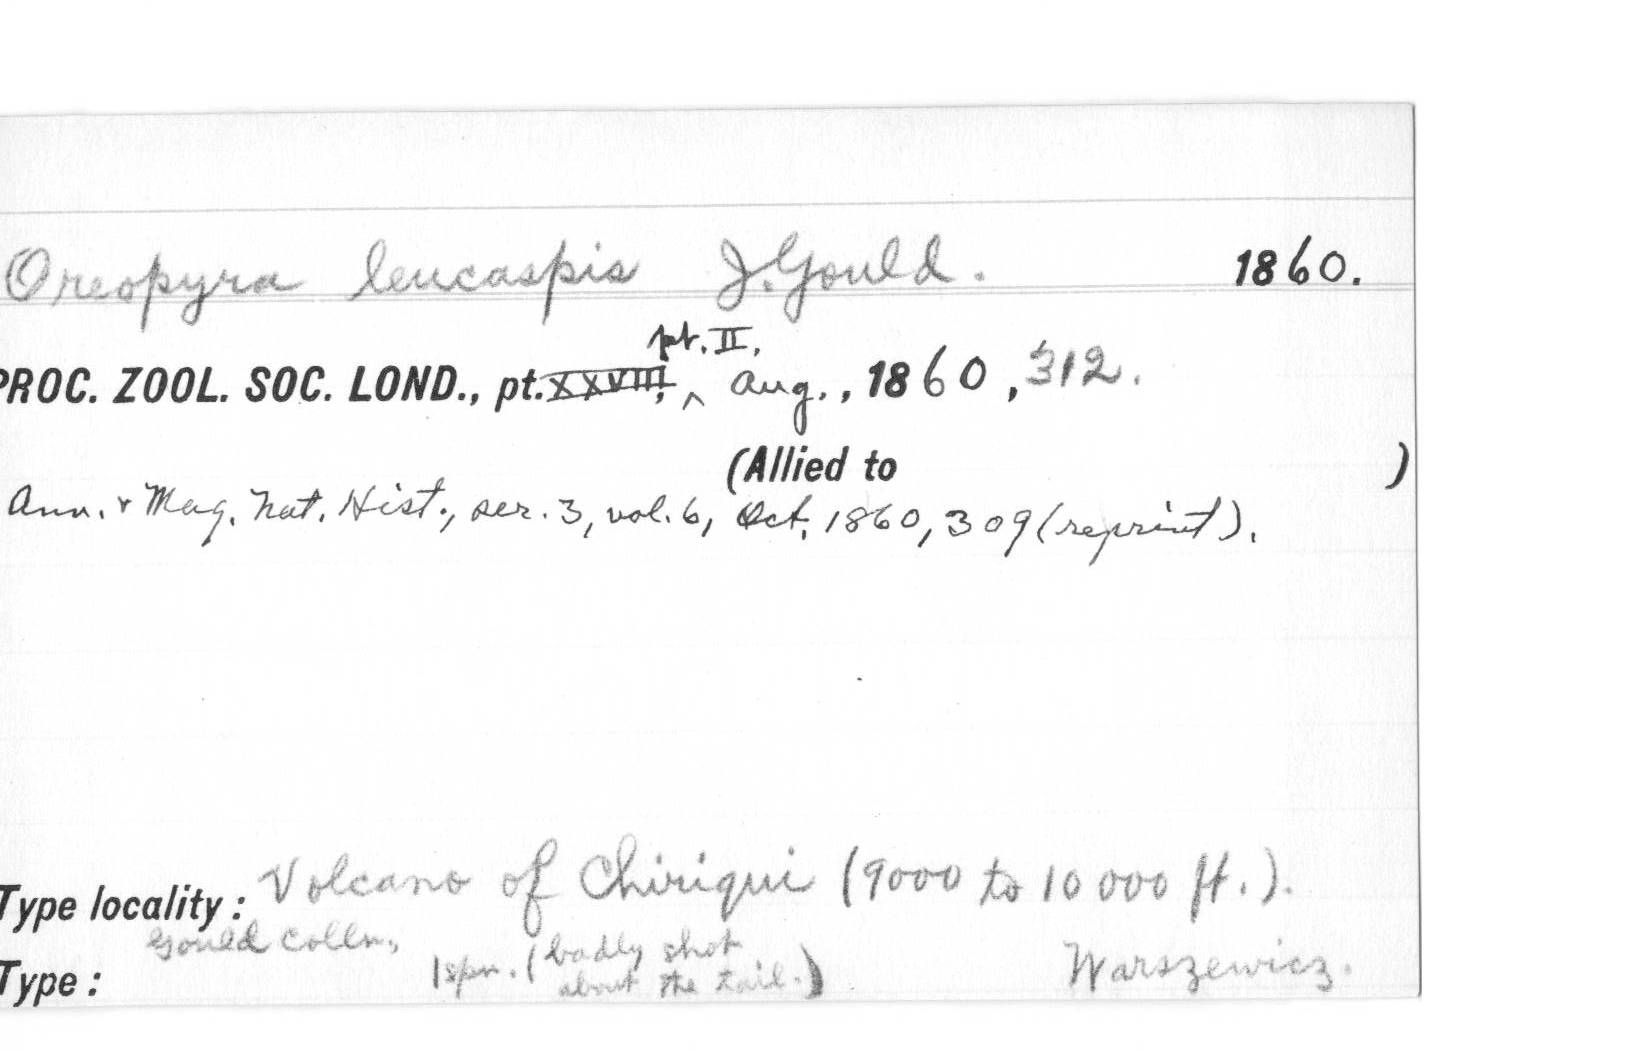 Oreopyra leucaspis J. Gould. 1860.
pt. II,
PROC. ZOOL. SOC. LOND., pt. XXVIII, ^ Aug., 1860, 312.
(Allied to )
Ann. & Mag. Nat. Hist., ser. 3, vol. 6, Oct. 1860, 309 (reprint).
Type locality: Volcano of Chiriqui (9000 to 10 000 ft.).
Gould colln,
Type: 1 spn. (badly shot about the tail.) Warszewicz.